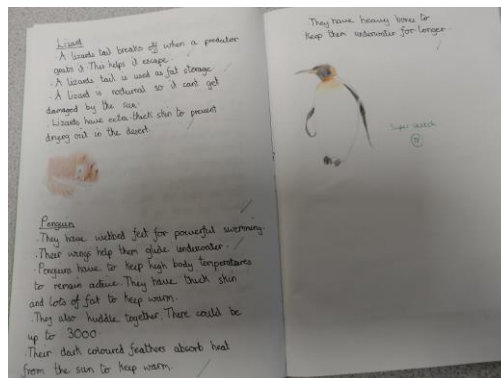 Lizard
. A lizards tail breaks off when a predator
grabs it. This helps it escape.
. A lizards tail is used as fat storage.
. A lizard is nocturnal so it can't get
damaged by the sun.
. Lizards have extra-thick skin to prevent
drying out in the desert.
Penguin
. They have webbed feet for powerful swimming.
. Their wings help them glide underwater.
. Penguins have to keep high body temperatures
to remain active. They have thick skin
and lots of fat to keep warm.
. They also huddle together. There could be
up to 3000.
. Their dark coloured feathers absorb heat
from the sun to keep warm.
They have heavy bones to
keep them underwater for longer.
Super sketch